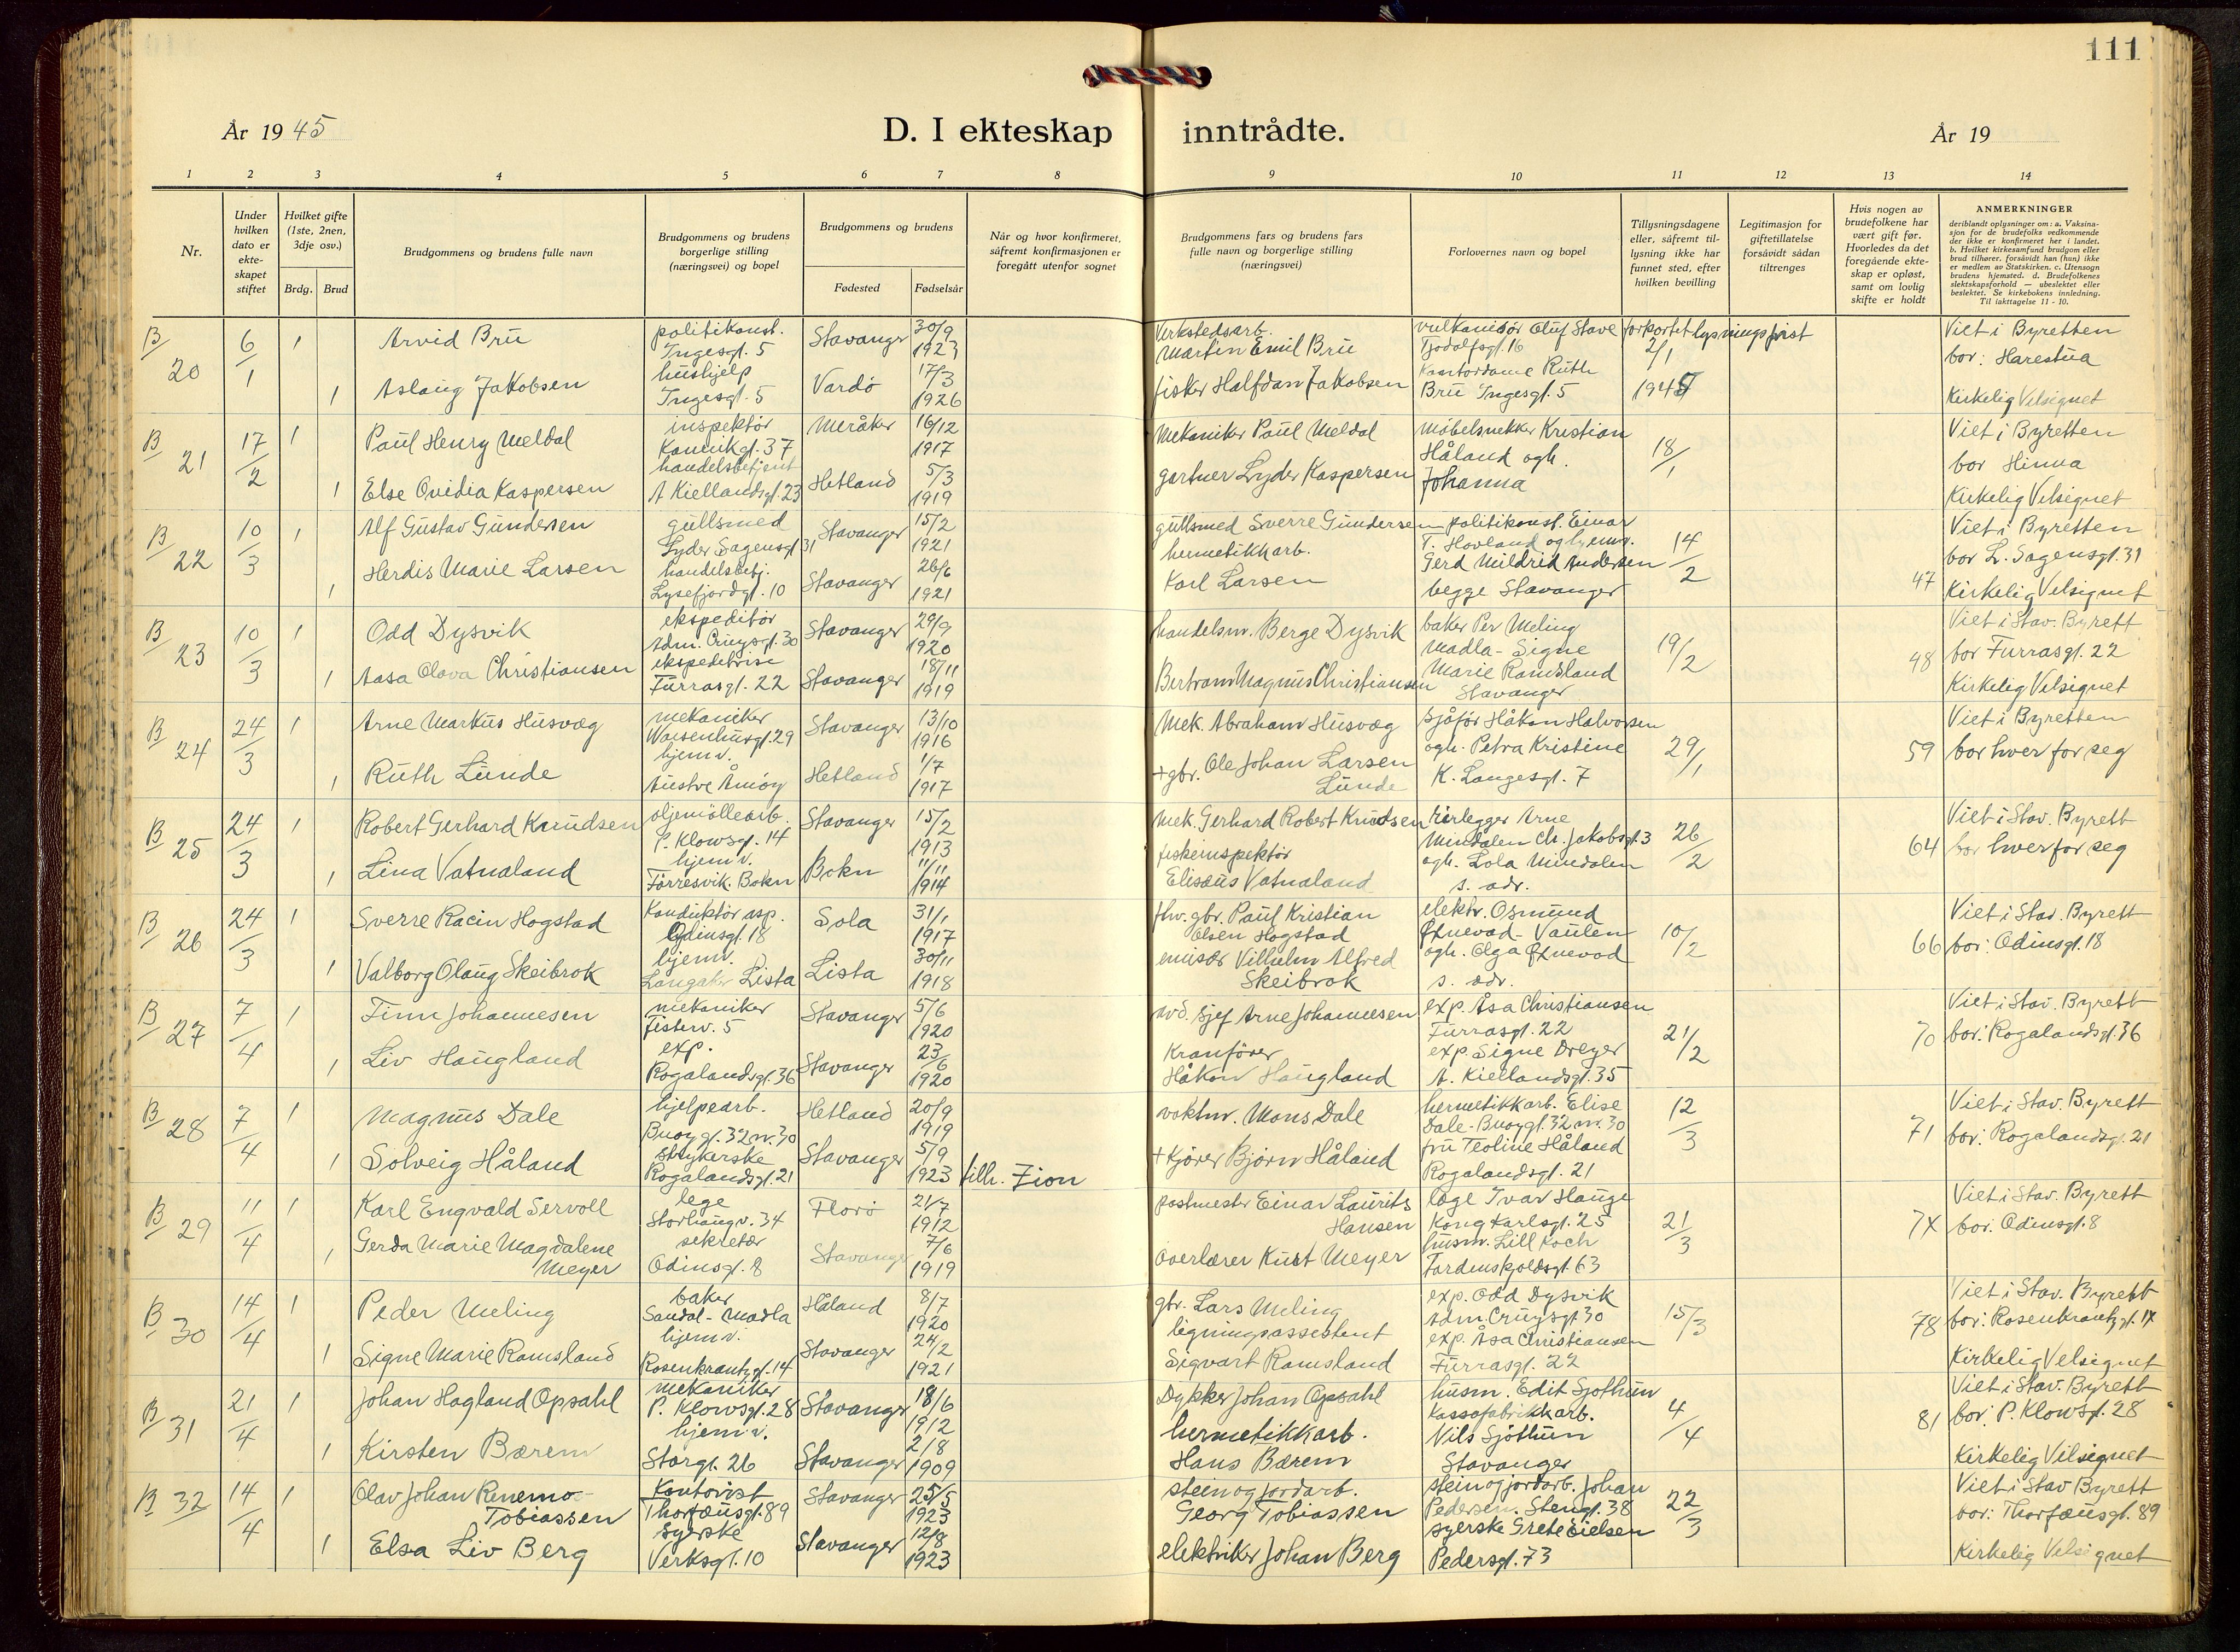 111
År 1945
D. I ekteskap inntrådte.
År 19
1 2 3 4 5 6 7 8 9 10 11 12 13 14
Nr.
Under hvilken dato er ekte-skapet stiftet
Hvilket gifte (1ste, 2nen, 3dje osv.)
Brdg. Brud
Brudgommens og brudens fulle navn
Brudgommens og brudens borgerlige stilling (næringsvei) og bopel
Brudgommens og brudens
Fødested Fødselsår
Når og hvor konfirmeret, såfremt konfirmasjonen er foregått utenfor sognet
Brudgommens fars og brudens fars fulle navn og borgerlige stilling (næringsvei)
Forlovernes navn og bopel
Tillysningsdagene eller, såfremt til-lysning ikke har funnet sted, efter hvilken bevilling
Legitimasjon for giftetillatelse forsåvidt sådan tiltrenges
Hvis nogen av brudefolkene har vært gift før. Hvorledes da det foregående ekte-skap er opløst, samt om lovlig skifte er holdt
ANMERKNINGER
deriblandt oplysninger om: a. Vaksina-sjon for de brudefolks vedkommende der ikke er konfirmeret her i landet. b. Hvilket kirkesamfund brudgom eller brud tilhører, forsåvidt han (hun) ikke er medlem av Statskirken. c. Utensogn brudens hjemsted. d. Brudefolkenes slektskapsforhold — ubeslektet eller beslektet. Se kirkebokens innledning. Til iakttagelse 11 - 10.
B/20 6/1 1 Arvid Brü politikonst. Ingesgt. 5 Stavanger 30/9 1923
Verkstedsarb. Martin Emil Brü
vulkanisör Oluf Stave Tjodolfsgt. 16 forkortet lysningsfrist 2/1
Viet i Byretten bor: Harestua
1 Aslaug Jakobsen hushjelp Ingesgt. 5 Vardö 17/3 1926
fisker Halfdan Jakobsen
Kontordame Ruth Brü Ingesgt. 5 1945
Kirkelig Velsignet
B/21 17/2 1 Paul Henry Meldal inspektör Kannikgt. 37 Meråker 16/12 1917
Mekaniker Paul Meldal
Möbelsnekker Kristian Håland ogh. Johanna 18/1
Viet i Byretten bor Hinna
1 Else Ovidia Kaspersen handelsbetjent A Kiellandsgt. 23 Hetland 5/3 1919
gartner Lyder Kaspersen
Kirkelig Velsignet
B/22 10/3 1 Alf Gustav Gundersen gullsmed Lyder Sagensgt 31 Stavanger 15/2 1921
gullsmed Sverre Gundersen
politikonst. Einar T. Hovland og hjemv. Gerd Mildrid Andersen begge Stavanger 14/2
Viet i Byretten bor L. Sagensgt. 31
1 Herdis Marie Larsen handelsbetj. Lysefjordgt. 10 Stavanger 26/6 1921
hermetikkarb. Karl Larsen
47 Kirkelig Velsignet
B/23 10/3 1 Odd Dysvik ekspeditör Adm. Cruysgt. 30 Stavanger 29/9 1920
handelsm. Berge Dysvik
baker Per Meling Madla - Signe Marie Ramsland Stavanger 19/2
Viet i Stav. Byrett
1 Aasa Olava Christiansen ekspeditrise Furrasgt. 22 Stavanger 18/11 1919
Bertram Magnus Christiansen
48 bor Furrasgt. 22 Kirkelig Velsignet
B/24 24/3 1 Arne Markus Husvæg mekaniker Waisenhusgt. 29 Stavanger 13/10 1916
Mek. Abraham Husvæg
sjåför Håkon Halvorsen ogh. Petra Kristine K. Langesgt. 7 29/1
Viet i Byretten
59 bor hver for seg
1 Ruth Lunde hjemv. Austre Åmöy Hetland 1/7 1917
+ gbr. Ole Johan Larsen Lunde
B/25 24/3 1 Robert Gerhard Knudsen oljemöllearb. P. Klowsgt. 14 Stavanger 15/2 1913
Mek. Gerhard Robert Knudsen
rörlegger Arne Mindalen Ch. Jakobsgt. 3 ogh. Lola Mindalen s. adr. 26/2
Viet i Stav. Byrett
64 bor hver for seg
1 Lina Vatnaland hjemv. Förresvik. Bokn Bokn 11/11 1914
fiskeinspektör Elisæus Vatnaland
B/26 24/3 1 Sverre Racin Hogstad Konduktör asp. Odinsgt. 18 Sola 31/1 1917
fhv. gbr. Paul Kristian Olsen Hogstad
elektr. Osmund Øxnevad - Vaulen ogh. Olga Øxnevad s. adr. 10/2
Viet i Stav. Byrett
66 bor: Odinsgt. 18
1 Valborg Olaug Skeibrok hjemv. Langaker Lista Lista 30/11 1918
emisær Vilhelm Alfred Skeibrok
B/27 7/4 1 Finn Johannesen mekaniker Fisterv. 5 Stavanger 5/6 1920
avd. sjef Arne Johannesen
exp. Åsa Christiansen Furrasgt. 22 21/2
Viet i Stav. Byrett
70 bor: Rogalandsgt. 36
1 Liv Haugland exp. Rogalandsgt. 36 Stavanger 23/6 1920
Kranförer Håkon Haugland
exp. Signe Dreyer A. Kiellandsgt. 35
B/28 7/4 1 Magnus Dale hjelpearb. Buoygt. 32 nr. 30 Hetland 20/9 1919
vaktm. Mons Dale
hermetikkarb. Elise Dale - Buoygt. 32 nr. 30 12/3
Viet i Stav. Byrett
71 bor: Rogalandsgt. 21
1 Solveig Håland strykerske Rogalandsgt. 21 Stavanger 5/9 1923 tilh. Zion
+ Kjörer Björn Håland
fru Teoline Håland Rogalandsgt. 21
B/29 11/4 1 Karl Engvald Servoll lege Storhaugv. 34 Florö 21/7 1912
postmester Einar Laurits Hansen
læge Ivar Hauge Kong Karlsgt. 25 21/3
Viet i Stav. Byrett
bor: Odinsgt. 8
1 Gerda Marie Magdalene Meyer sekretær Odinsgt. 8 Stavanger 7/6 1919
Overlærer Kurt Meyer
husm. Lill Koch Tordenskjoldsgt. 63
B/30 14/4 1 Peder Meling baker Sandal - Madla Håland 8/7 1920
gbr. Lars Meling
exp. Odd Dysvik Adm. Cruysgt 30 15/3
Viet i Stav. Byrett
78 bor: Rosenkrantzgt. 14
1 Signe Marie Ramsland hjemv. Rosenkrantzgt. 14 Stavanger 24/2 1921
ligningsassestent Sigvart Ramsland
exp. Åsa Christiansen Furrasgt. 22
Kirkelig Velsignet
B/31 21/4 1 Johan Hagland Opsahl mekaniker P. Klowsgt. 28 Stavanger 18/6 1912
Dykker Johan Opsahl
husm. Edit Sjothun Kassefabrikkarb. Nils Sjöthun Stavanger 4/4
Viet i Stav. Byrett
81 bor: P. Klowsgt. 28
1 Kirsten Bærem hjemv. Storgt. 26 Stavanger 2/8 1909
hermetikkarb. Hans Bærem
Kirkelig Velsignet
B 32 14/4 1 Olav Johan Renemo-Tobiassen Kontorist Thorfæusgt. 89 Stavanger 25/5 1923
stein og jordarb. Georg Tobiassen
stein og jordarb. Johan Pedersen. Stengt. 38 22/3
Viet i Stav Byrett bor: Thorfæusgt. 89
1 Elsa Liv Berg syerske Verksgt. 10 Stavanger 12/8 1923
elektriker Johan Berg
syerske Grete Eielsen Pedersgt. 73
Kirkelig Velsignet